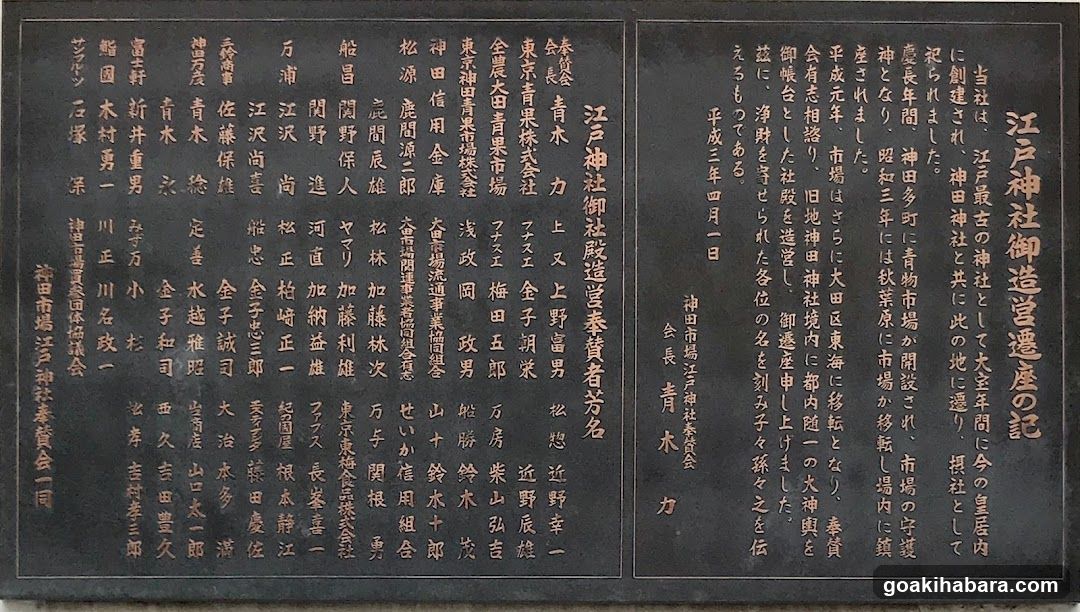 江戸神社御造営遷座の記
当社は、江戸最古の神社として大宝年間に今の皇居内
に創建され、神田神社と共に此の地に遷り、摂社として
祀られました。
慶長年間、神田多町に青物市場が開設され、市場の守護
神となり、昭和三年には秋葉原に市場が移転し場内に鎮
座されました。
平成元年、市場はさらに大田区東海に移転となり、奉賛
会有志相諮り、旧地神田神社境内に都内随一の大神輿を
御帳台とした社殿を造営し、御遷座申し上げました。
茲に、浄財を寄せられた各位の名を刻み子々孫々之を伝
えるものである。
平成三年四月一日
神田市場江戸神社奉賛会
会長 青木 力
江戸神社御社殿造営奉賛者芳名
奉賛会会長 青木 力 上又 上野富男 松惣 近野幸一
東京青果株式会社 フナスエ 金子朝栄 近野辰雄
全農大田青果市場 フナスエ 梅田五郎 万房 柴山弘吉
東京神田青果市場株式会社 浅政 岡 政男 船勝 鈴木 茂
神田信用金庫 大田市場流通事業協同組合 山十 鈴木十郎
松源 鹿間源二郎 大田市場関連事業者協同組合有志 せいか信用組合
鹿間辰雄 松林 加藤林次 万与 関根 勇
船昌 関野保人 ヤマリ 加藤利雄 東京東梅食品株式会社
関野 進 河直 加納益雄 フップス 長峯喜一
万浦 江沢 尚 松正 柏崎正一 紀の国屋 根本静江
江沢尚喜 船忠 金子忠三郎 藤田慶佐
三鈴商事 佐藤保雄 金子誠司 大治 本多 満
神田万彦 青木 稔 定善 水越雅昭 山口太一郎
青木 永 金子和司 西久 吉田豊久
富士軒 新井重男 みす万 小杉 松孝 吉村孝三郎
鮨國 木村勇一 川正 川名政一
サンフルーツ 石塚 保 神田市場買受人団体協議会
神田市場江戸神社奉賛会一同
goakihabara.com